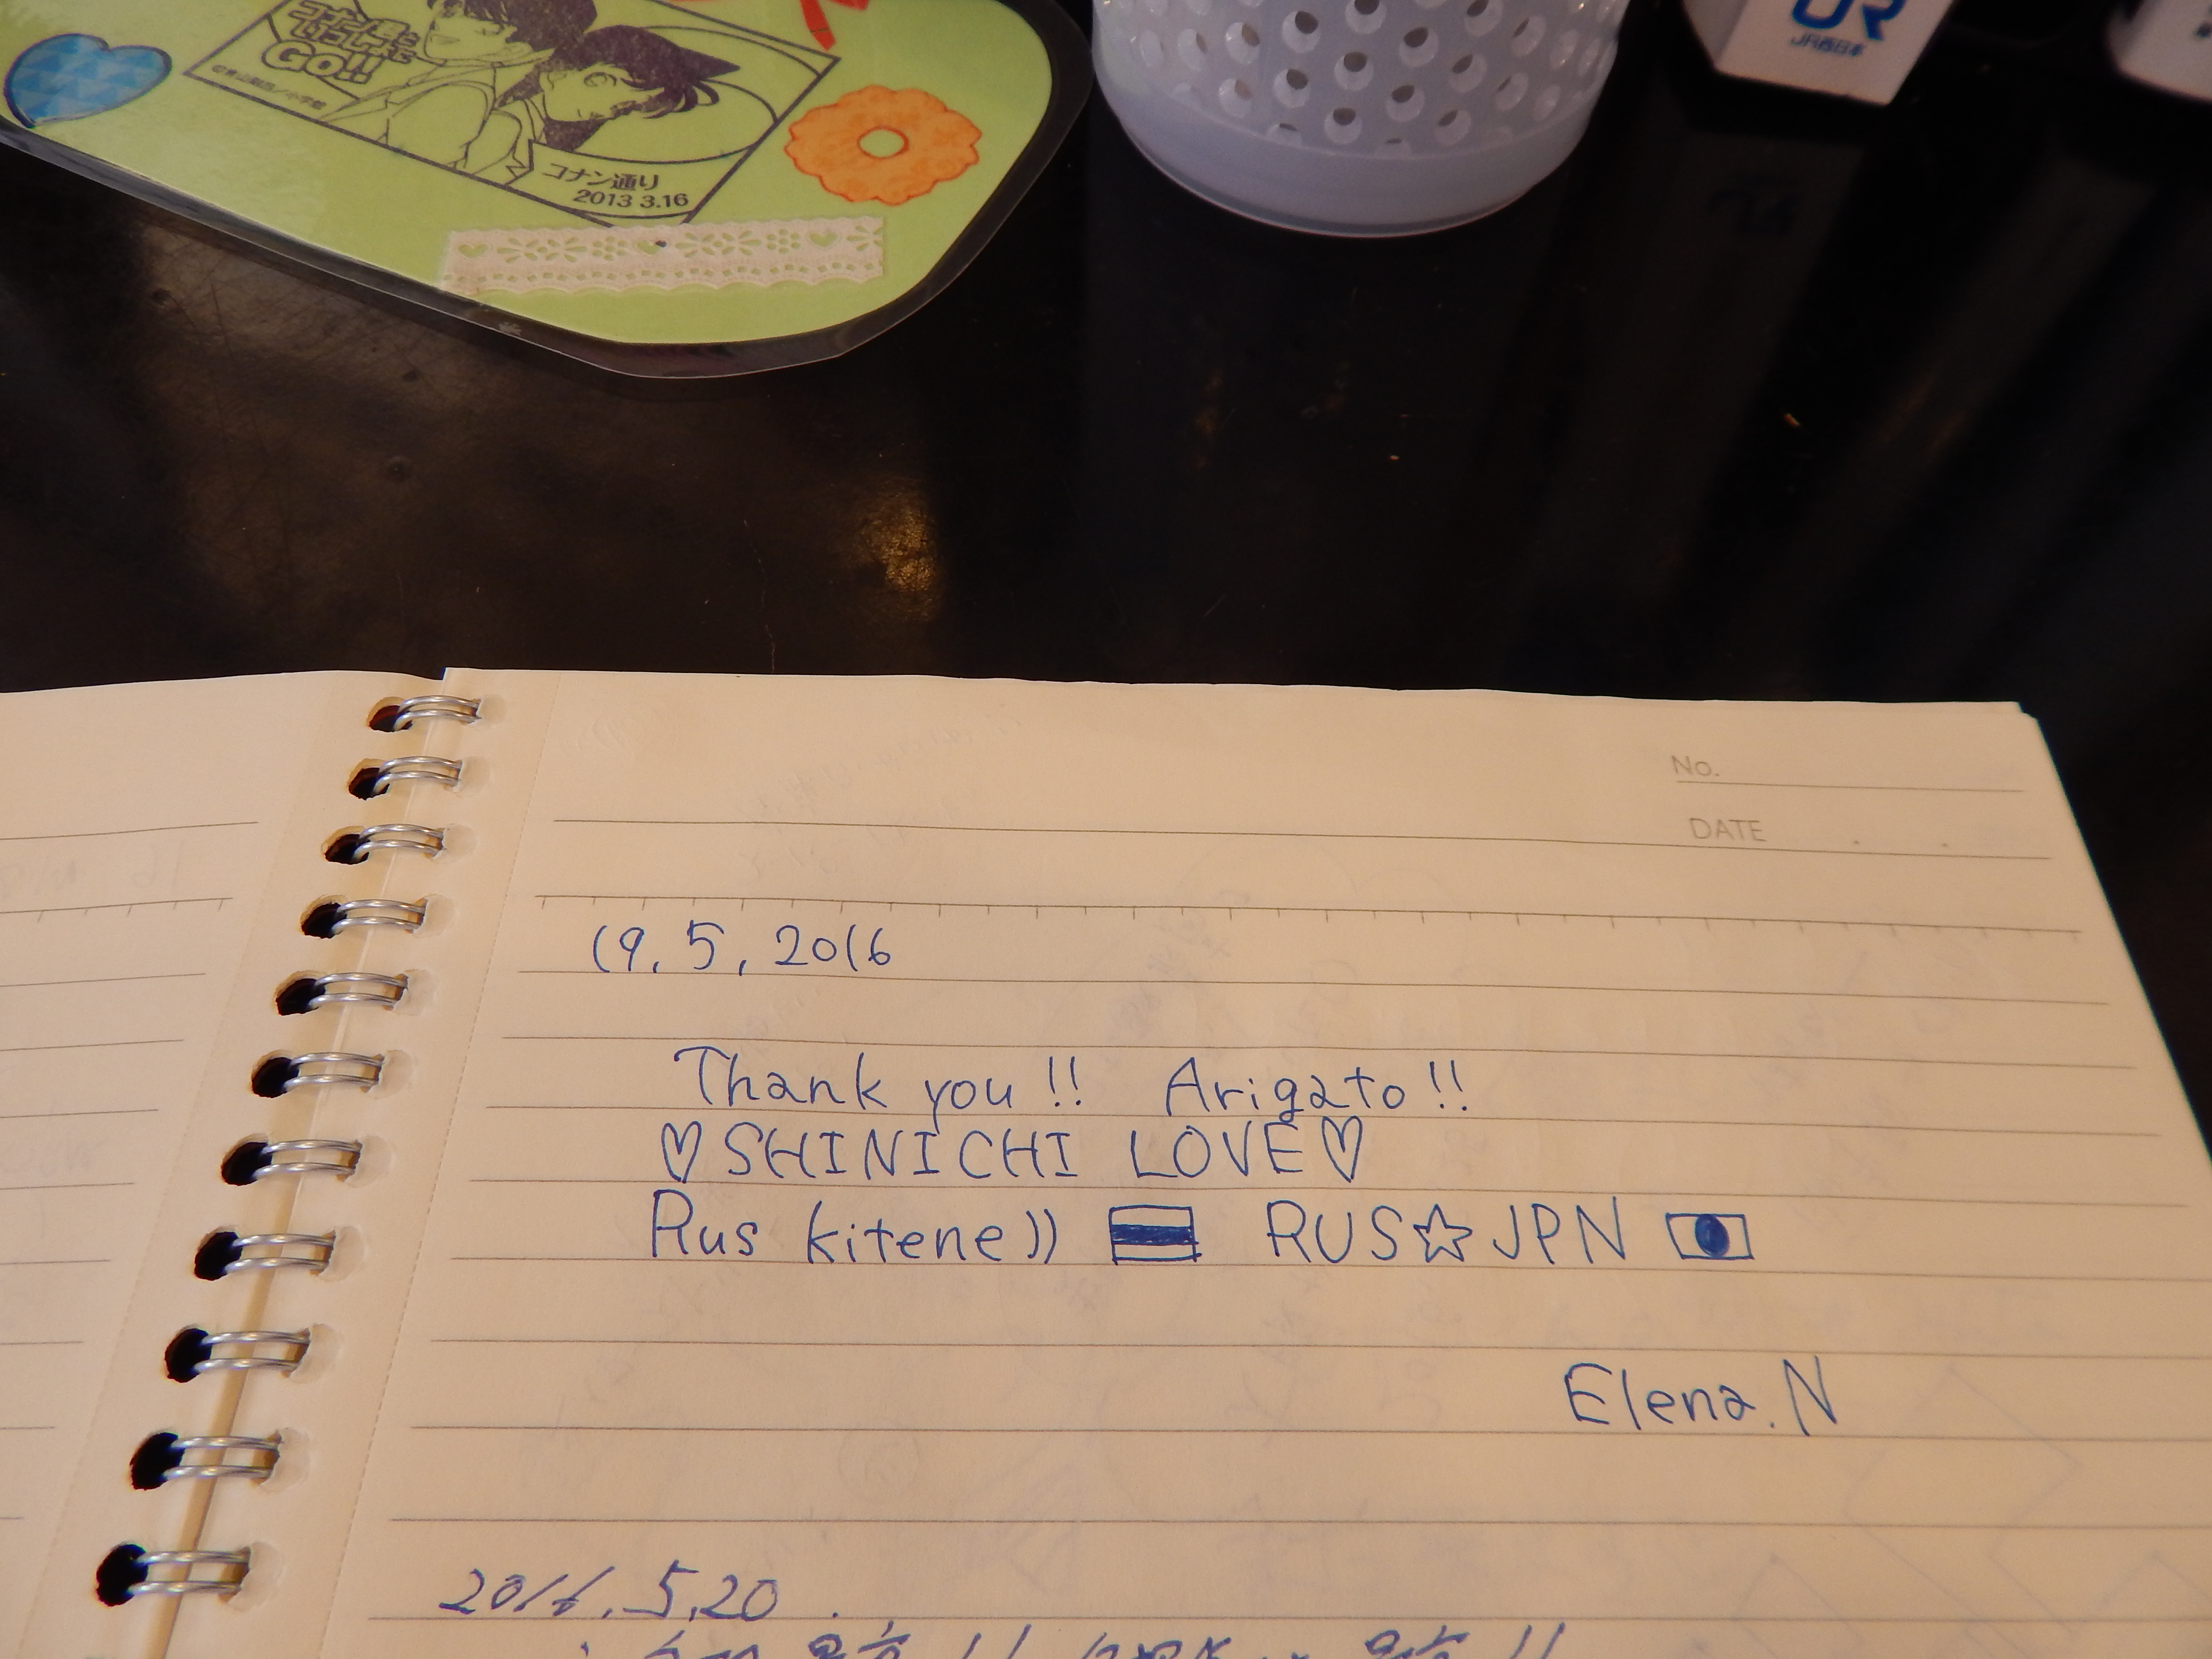 Go!!
コナン通り
2013 3.16
JR西日本
No.
DATE
19. 5, 2016
Thank you!! Arigato!!
♡SHINICHI LOVE♡
Rus kitene)) RUS☆JPN
Elena.N
2016.5.20.